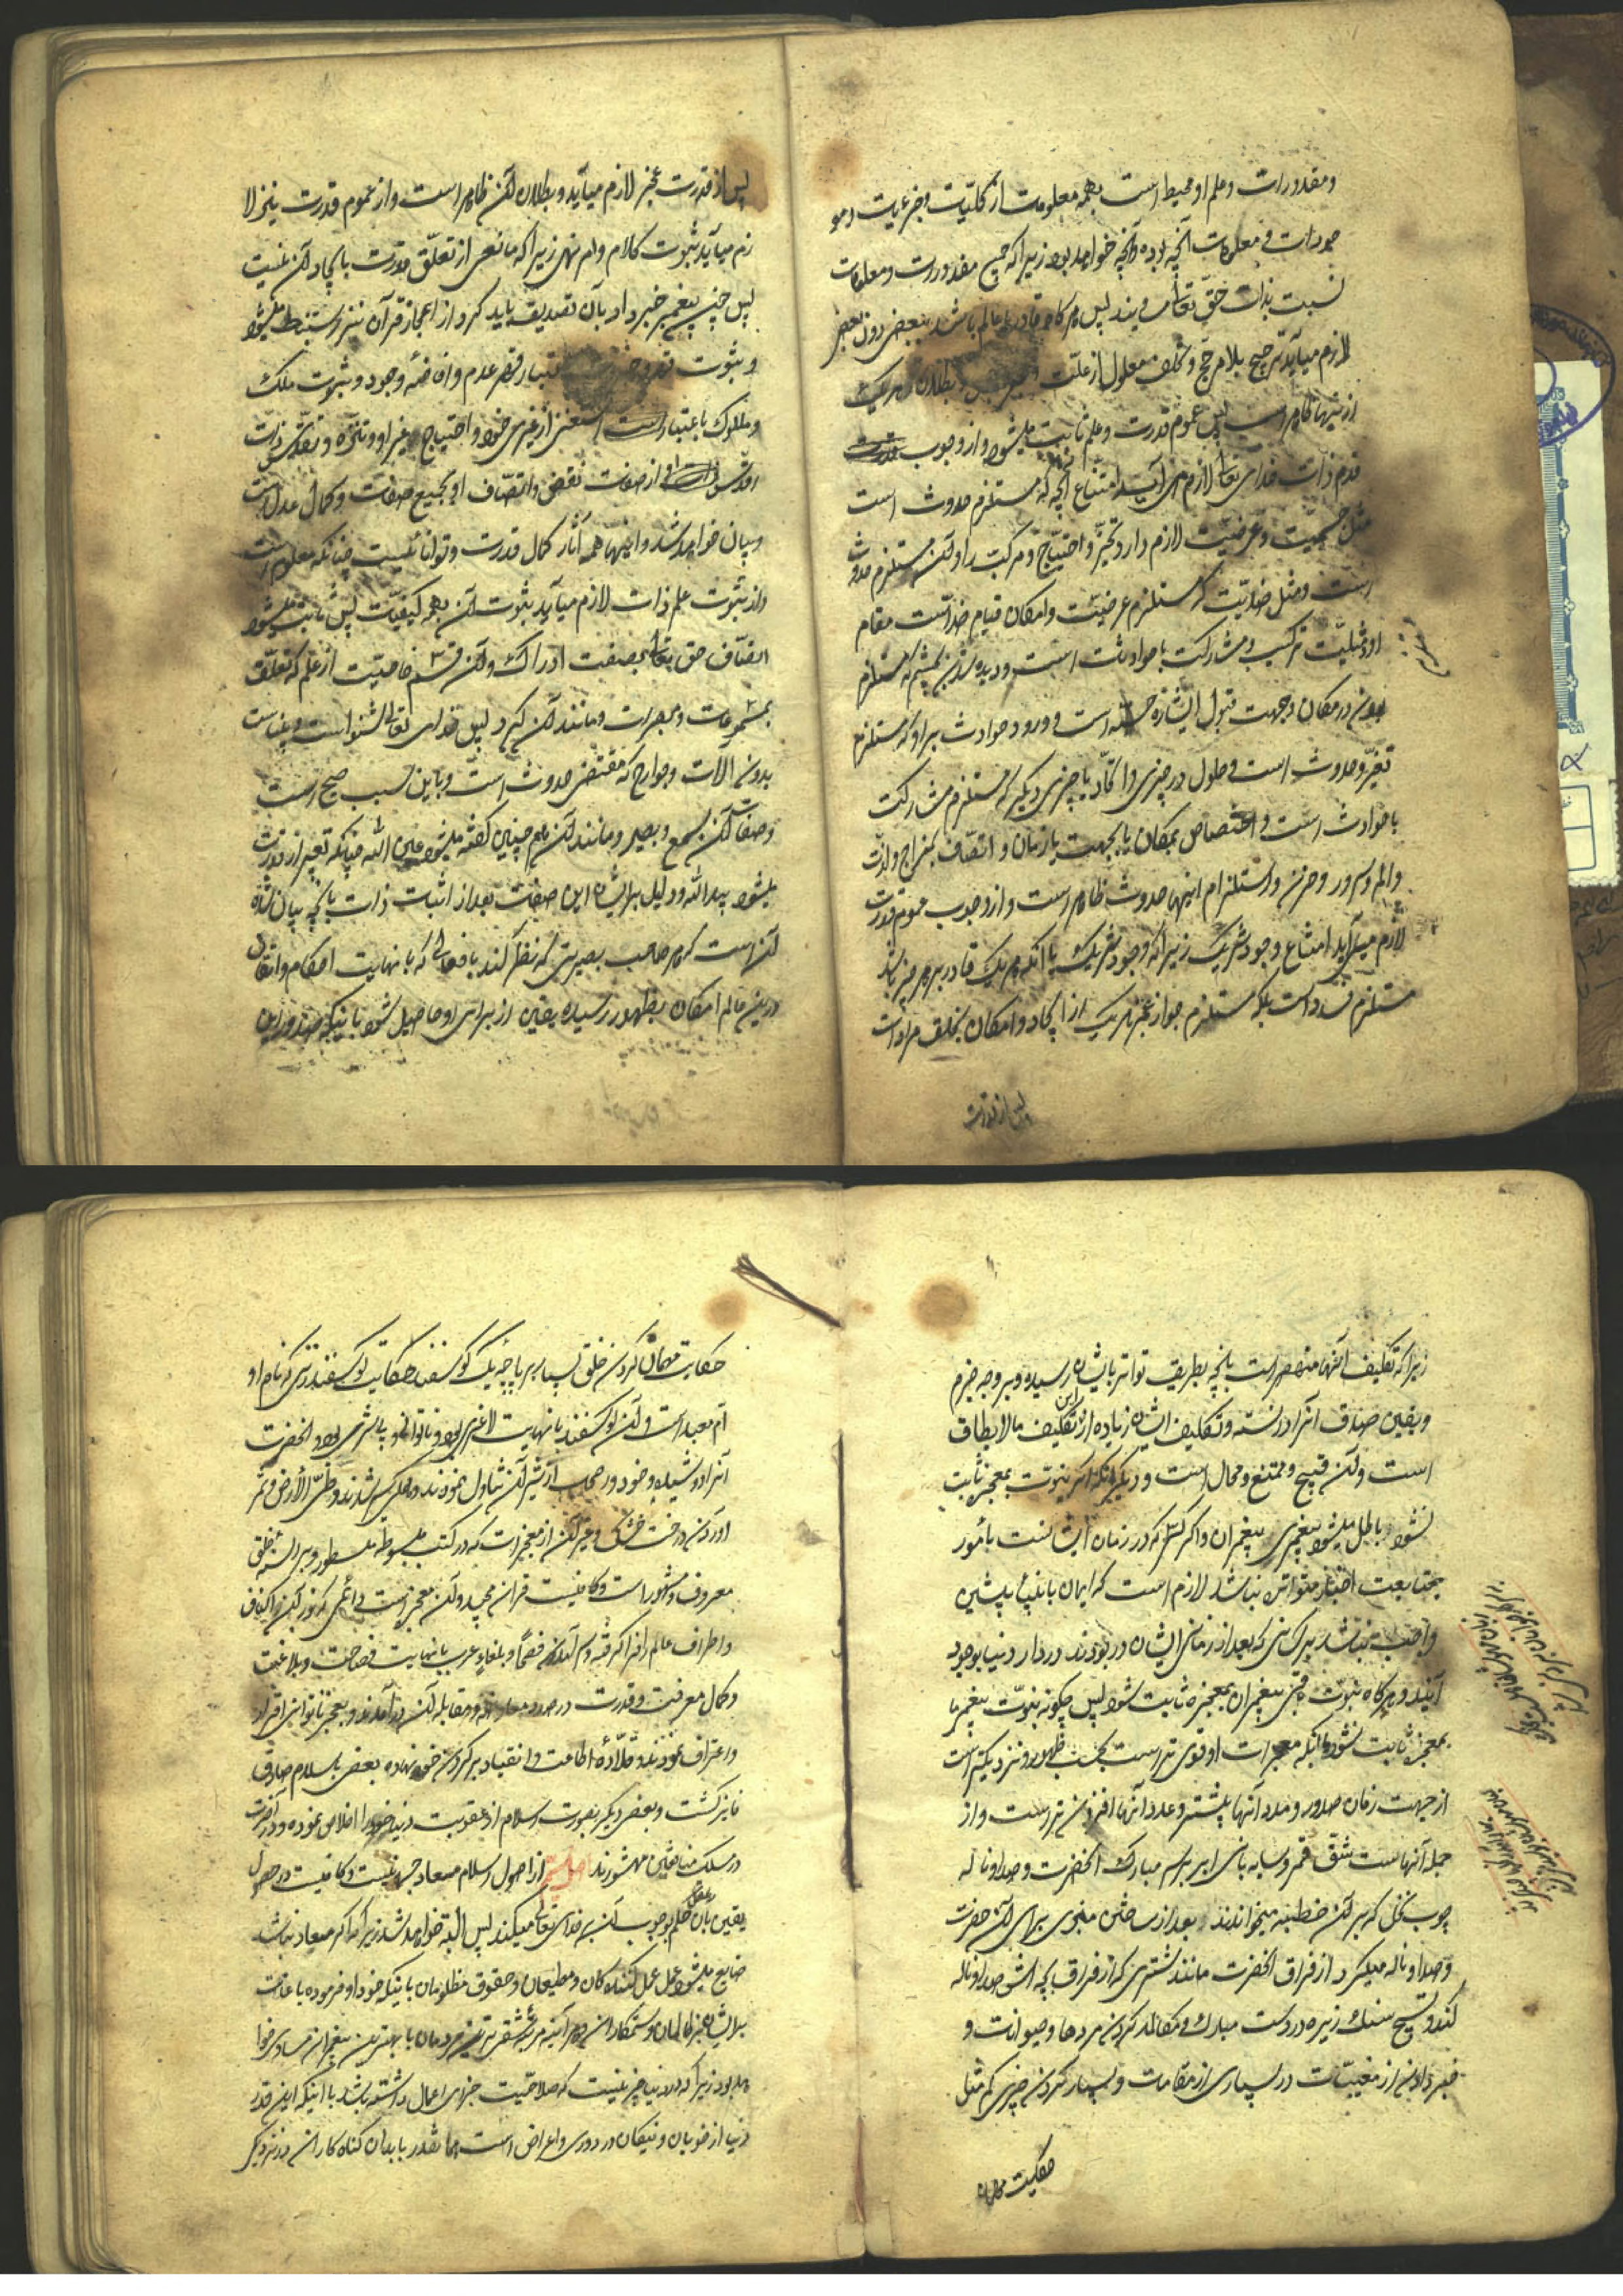 ومقدورات وعلم او محیط است بهمه معلومات از کلیّات وجزئیات ومو
جودات ومعلومات آنچه بوده وآنچه خواهد بود زیرا که جمیع مقدورات ومعلومات
نسبت بذات حقّ تعالی پس هرگاه قادر یا عالم باشد ببعضی دون بعضی
لازم میآید ترجیح بلا مرجّح وتخلف معلول از علّت وبطلان هر یک
از اینها ظاهر است پس عموم قدرت وعلم ثابت میشود واز وجوب
قدم ذات خدای تعالی لازم می آید امتناع آنچه که مستلزم حدوث است
مثل جسمیّت وعرضیّت لازم دارد تحیّز واحتیاج ومرکب را وآن مستلزم حدوث
است ومثل ضدّیّت که مستلزم عرضیّت وامکان قیام ضد است مقام
او ومثلیّت ترکیب ومشارکت با حوادث است ودیده شدن بچشم که مستلزم
بودن در مکان وجهت قبول اشاره حسّیه است وورود حوادث بر او که مستلزم
تغیّر وحدوث است وحلول در چیزی واتّحاد با چیزی دیگر که مستلزم مشارکت
با حوادث است واختصاص بمکان یا بجهت یا زمان واتّصاف بمزاج ولذّت
والم وسرور وحزن واستلزام اینها حدوث ظاهر است واز وجوب عموم قدرت
لازم میآید امتناع وجود شریک زیرا که وجود شریک با آنکه هر یک قادر بر هر چیز باشد
مستلزم فساد است بلکه مستلزم جواز عجز هر یک از ایجاد وامکان تخلف مراد است
پس از قدرت
پس از قدرت عجز لازم میآید وبطلان آن ظاهر است واز عموم قدرت نیز لا
زم میآید ثبوت کلام وامر ونهی زیرا که مانعی از تعلّق قدرت بایجاد آن نیست
پس چون پیغمبر خبر داد بآن تصدیق باید کرد واز اعجاز قرآن نیز مستنبط میشود
وثبوت قهر عدم وافاضهٔ وجود وثبوت ملک
وملکوت باعتبار استغنای از غیر خود واحتیاج غیر او وتنزّه وتقدّس ذات
اقدس از صفات نقص واتّصاف او بجمیع صفات وکمال عدل است
وبیان خواهد شد واینها همه آثار کمال قدرت وتوانائیست چنانکه معلوم است
واز ثبوت علم ذات لازم میآید ثبوت آن بهمه کیفیّات پس ثابت میشود
اتّصاف حق تعالی بصفت ادراک وآن قسم خاصّیت از علم که تعلّق
بمسموعات ومبصرات ومانند آن گیرد پس خدای تعالی شنوا است وبیناست
بدون آلات وجوارح که مقتضی حدوث است وباین سبب صحیح است
وصفات آن سمیع وبصیر ومانند آن هم چنین گفته میشود عین الله چنانکه تعبیر از قدرت
میشود بید الله ودلیل بر این صفات بعد از اثبات ذات بآنچه بیان شد
آنست که هر صاحب بصیرتی که نظر کند بافعالی که با نهایت احکام واتقان
درین عالم امکان بظهور رسیده یقین از برای او حاصل شود باینکه
زیرا که تکلیف آنها منحصر است بآنچه بطریق تواتر بایشان رسیده وبر وجه جزم
ویقین صدق آنرا دانسته وتکلیف ایشان زیاده از این تکلیف ما لا یطاق
است وآن قبیح وممتنع ومحال است ودیگر آنکه اگر نبوّت بمعجزه ثابت
نشود باطل میشود پیغمبری پیغمبران واگر کسی که در زمان ایشان نیست مأمور
بمتابعت اخبار متواتره نباشد لازم است که ایمان بانبیاء پیشین
واجب نباشد بر کسانی که بعد از زمان ایشان در بودند در دار دنیا بوجود
آیند وهرگاه نبوّت باقی پیغمبران بمعجزه ثابت شود پس چگونه نبوّت پیغمبر ما
بمعجزه ثابت نشود با آنکه معجزات او قوی تر است بحسب ظهور ونزدیکتر است
از جهت زمان صدور ومدد آنها بیشتر وعدد آنها افزون تر است واز
جمله آنهاست شقّ قمر وسایه بانی ابر بر سر مبارک آنحضرت وصدا وناله
چوب نخل که بر آن خطبه میخواندند بعد از ساختن منبری برای آن حضرت
وصدا وناله میکرد از فراق آنحضرت مانند شتری که از فراق بچه اش صدا وناله
کند وتسبیح سنگ ریزه در دست مبارک ومکالمه کردن مردها وحیوانات و
خبر دادن از مغیبات در بسیاری از مقامات وبسیار کردن چیزی کم مثل
حکایت مهمان
حکایت مهمان کردن خلق بسیار بر پاچه یک گوسفند وحکایت گوسفند زنی که نام او
امّ معبد است وآن گوسفند با نهایت لاغری بود وناتوانی وبی شیری بود وآنحضرت
آنرا دوشیده وخود وصحابه از شیر آن تناول نمودند وهمگی سیر شدند وطیّ الأرض وثمر
آوردن درخت خشک وغیر آن از معجزات که در کتب مبسوطه مسطور وبر السنه خلق
معروف ومشهور است وکافیست قرآن مجید وآن معجزیست دائمی که نور آن اکناف
واطراف عالم را فرا گرفته وسر آمدان فصحا وبلغای عرب با نهایت فصاحت وبلاغت
وکمال معرفت وقدرت در صدد معارضه ومقابله آن در آمدند وبعجز ناتوانی اقرار
واعتراف نمودند وقلّادهٔ اطاعت وانقیاد بر گردن خود نهاده بعضی باسلام صادق
فایز گشت وبعضی دیگر بصورت اسلام از عقوبت دنیا خود را خلاص نموده ودر آخرت
در سلک منافقین محشورند اصل از اصول اسلام معاد جسمانیست وکافیست در حصول
یقین بآن حکم عقل بوجوب آن بر خدای تعالی میکند پس البته خواهد شد زیرا که اگر معاد نباشد
ضایع میشود عمل عمل کنندگان ومطیعان وحقوق مظلومان باینکه خود او فرموده باعانت
ظالمان وستمکاران وهر آینه مرتبه شقی ترین مردمان با بهترین پیغمبران مساوی خوا
هد بود زیرا که در دنیا چیزی نیست که صلاحیت جزای اعمال داشته باشد با اینکه این قدر
دنیا از خوبان ونیکان در دوری واعراض است همانقدر با بدان گناه کاران در نزدیکی